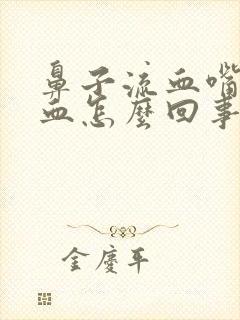 鼻子流血嘴
血怎麼回事
金慶平